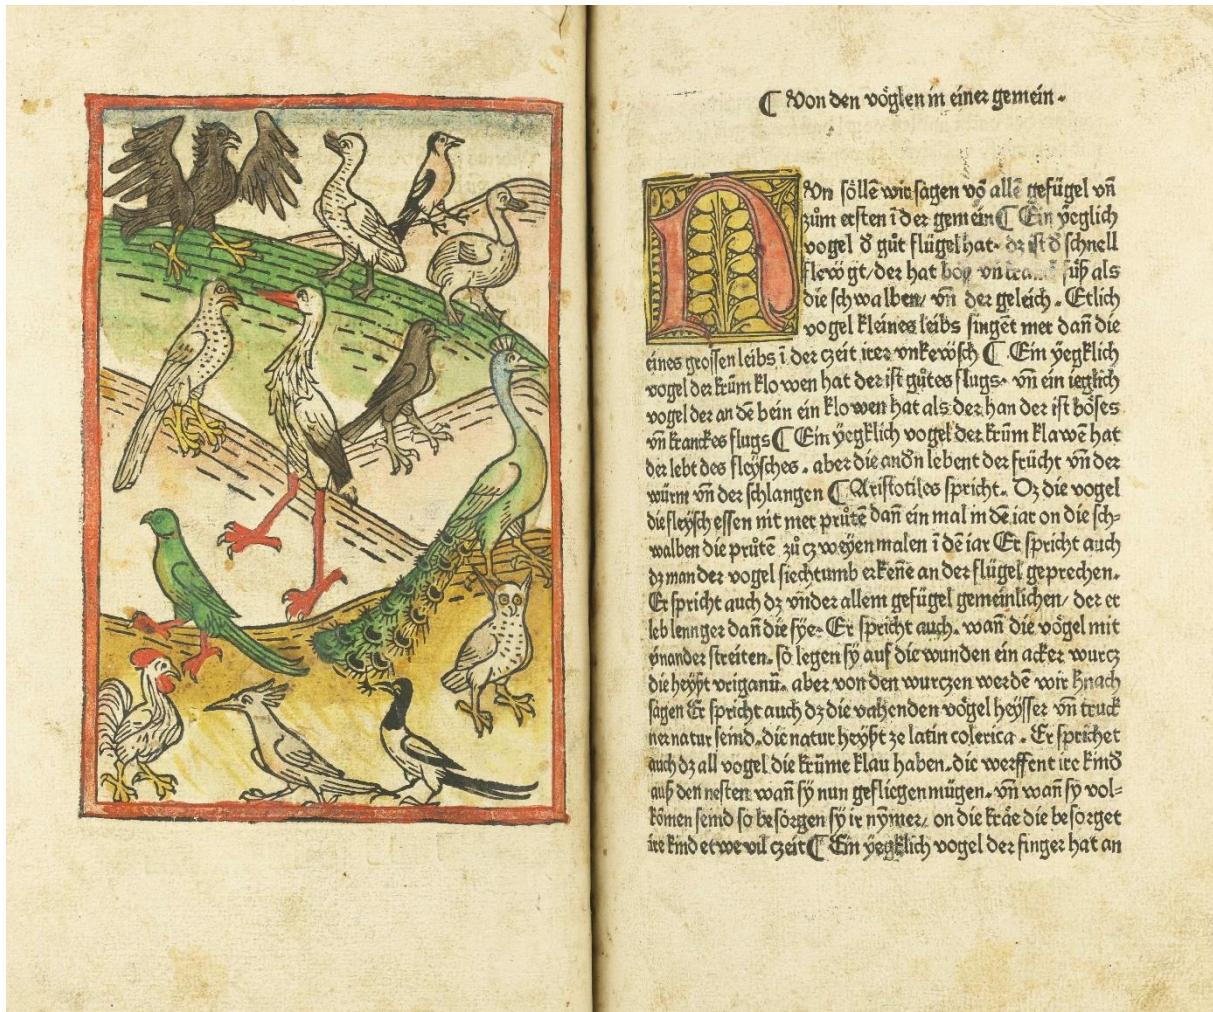 ¶ Von den vöglen in einer gemein.
NUn söllē wir sagen vō allē gefügel vñ
zům ersten ī der gemein ¶ Ein yeglich
vogel ð gůt flügel hat. dz ist ð schnell
flewgt/der hat böß vnd krancke füß als
die schwalben/ vñ der geleich. Etlich
vogel kleines leibs singēt mer dañ die
eines grossen leibs ī der czeit irer vnkewsch ¶ Ein yegklich
vogel der krūm klowen hat der ist gůtes flugs. vñ ein ieglich
vogel der an dē bein ein klowen hat als der han der ist böses
vñ kranckes flugs ¶ Ein yegklich vogel der krūm klawē hat
der lebt des fleysches. aber die andn̄ lebent der frücht vñ der
würm vñ der schlangen ¶ Aristotiles spricht. Dz die vogel
die fleysch essen nit mer průtē dañ ein mal in dē iar on die sch-
walben die průtē zů czweyen malen ī dē iar Er spricht auch
dz man der vogel siechtumb erkeñe an der flügel geprechen.
Er spricht auch dz vnder allem gefügel gemeinlichen/ der er
leb lennger dañ die sye. Er spricht auch. wañ die vögel mit
einander streiten. so legen sy auf die wunden ein acker wurcz
die heyßt origanū. aber von den wurczen werdē wir hnach
sagen Er spricht auch dz die vahenden vögel heysser vñ truck
ner natur seind. die natur heyßt ze latin colerica. Er sprichet
auch dz all vogel die krūme klau haben. die werffent ire kind
auß den nesten wañ sy nun gefliegen mügen. vñ wañ sy vol-
kōmen seind so besorgen sy ir nymer/ on die kräe die besorget
ire kind etwe vil czeit ¶ Ein yegklich vogel der finger hat an